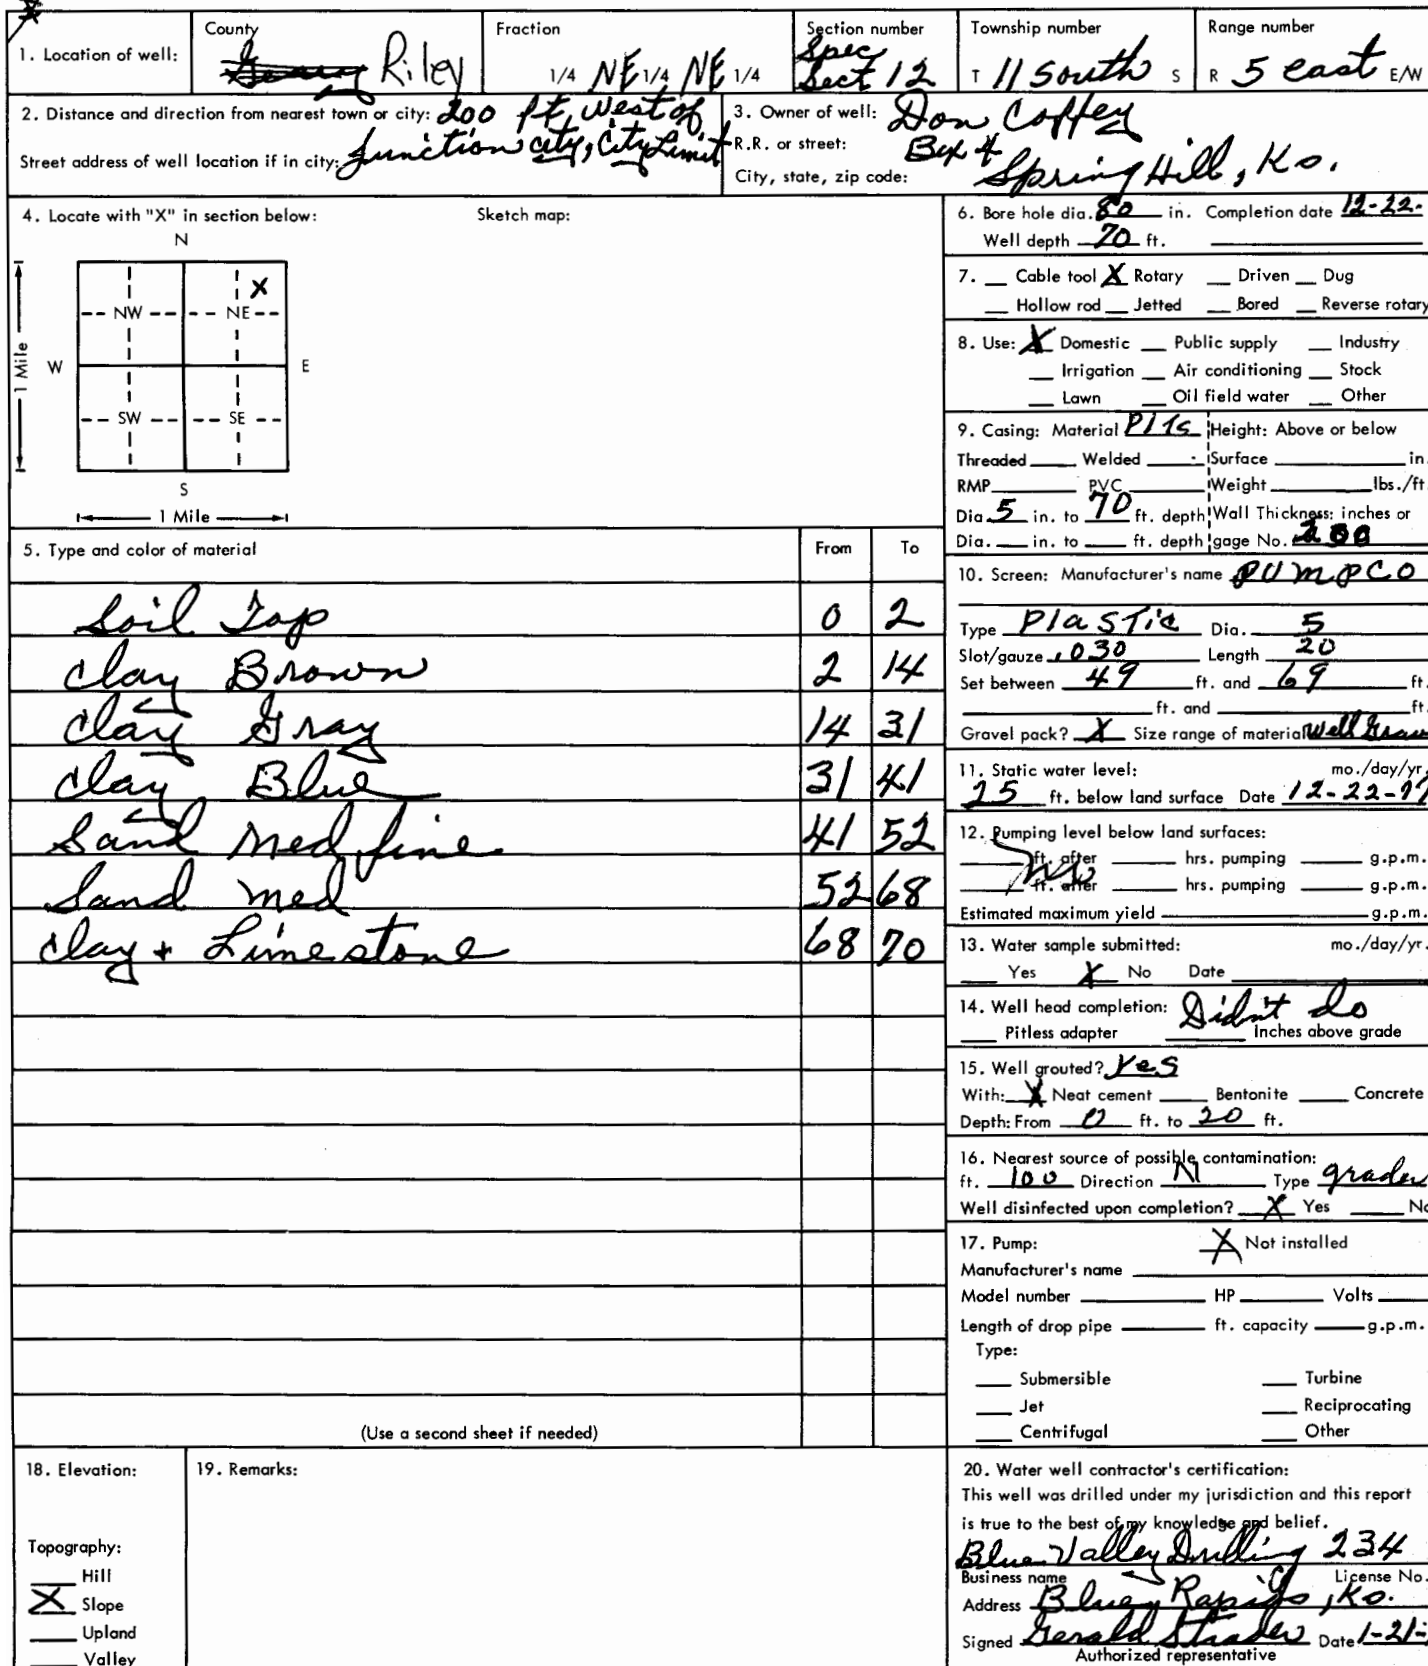 1. Location of well:
County
Riley
Fraction
1/4 NE 1/4 NE 1/4
Section number
Spec
Sect 12
Township number
T 11 South S
Range number
R 5 east E/W
2. Distance and direction from nearest town or city: 200 ft, West of
Junction city, City Limit
Street address of well location if in city:
3. Owner of well: Don Coffey
R.R. or street: Box 4
City, state, zip code: Spring Hill, Ks.
4. Locate with "X" in section below:
Sketch map:
N
X
NW NE
W E
1 Mile
SW SE
S
1 Mile
5. Type and color of material From To
Soil Top 0 2
clay Brown 2 14
clay Gray 14 31
clay Blue 31 41
Sand Med fine 41 52
Sand med 52 68
clay + Limestone 68 70
(Use a second sheet if needed)
6. Bore hole dia. 80 in. Completion date 12-22-
Well depth 70 ft.
7. Cable tool X Rotary Driven Dug
Hollow rod Jetted Bored Reverse rotary
8. Use: X Domestic Public supply Industry
Irrigation Air conditioning Stock
Lawn Oil field water Other
9. Casing: Material Height: Above or below
Threaded Welded Surface in.
RMP PVC Weight lbs./ft
Dia. 5 in. to 70 ft. depth Wall Thickness: inches or
Dia. in. to ft. depth gage No.
10. Screen: Manufacturer's name PUMPCO
Type Plastic Dia. 5
Slot/gauze .030 Length 20
Set between 49 ft. and 69 ft.
ft. and ft.
Gravel pack? X Size range of material Well Grav
11. Static water level: mo./day/yr.
25 ft. below land surface Date 12-22-77
12. Pumping level below land surfaces:
ft. after hrs. pumping g.p.m.
ft. after hrs. pumping g.p.m.
Estimated maximum yield g.p.m.
13. Water sample submitted: mo./day/yr.
Yes X No Date
14. Well head completion: Didn't do
Pitless adapter Inches above grade
15. Well grouted? Yes
With: X Neat cement Bentonite Concrete
Depth: From 0 ft. to 20 ft.
16. Nearest source of possible contamination:
ft. 100 Direction N Type grader
Well disinfected upon completion? X Yes No
17. Pump: X Not installed
Manufacturer's name
Model number HP Volts
Length of drop pipe ft. capacity g.p.m.
Type:
Submersible Turbine
Jet Reciprocating
Centrifugal Other
18. Elevation:
Topography:
Hill
X Slope
Upland
Valley
19. Remarks:
20. Water well contractor's certification:
This well was drilled under my jurisdiction and this report
is true to the best of my knowledge and belief.
Blue Valley Drilling 234
Business name License No.
Address Blue Rapids, Ks.
Signed Gerald Strader Date 1-21-
Authorized representative